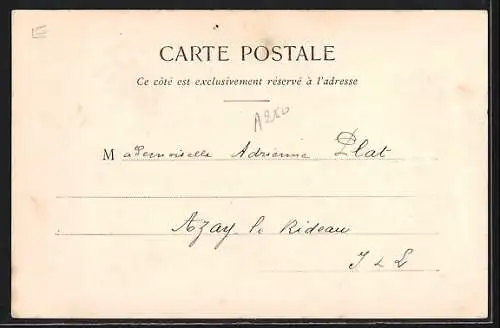 CARTE POSTALE
Ce côté est exclusivement réservé à l'adresse
A280
Mademoiselle Adrienne Plat
Azay le Rideau
I & L